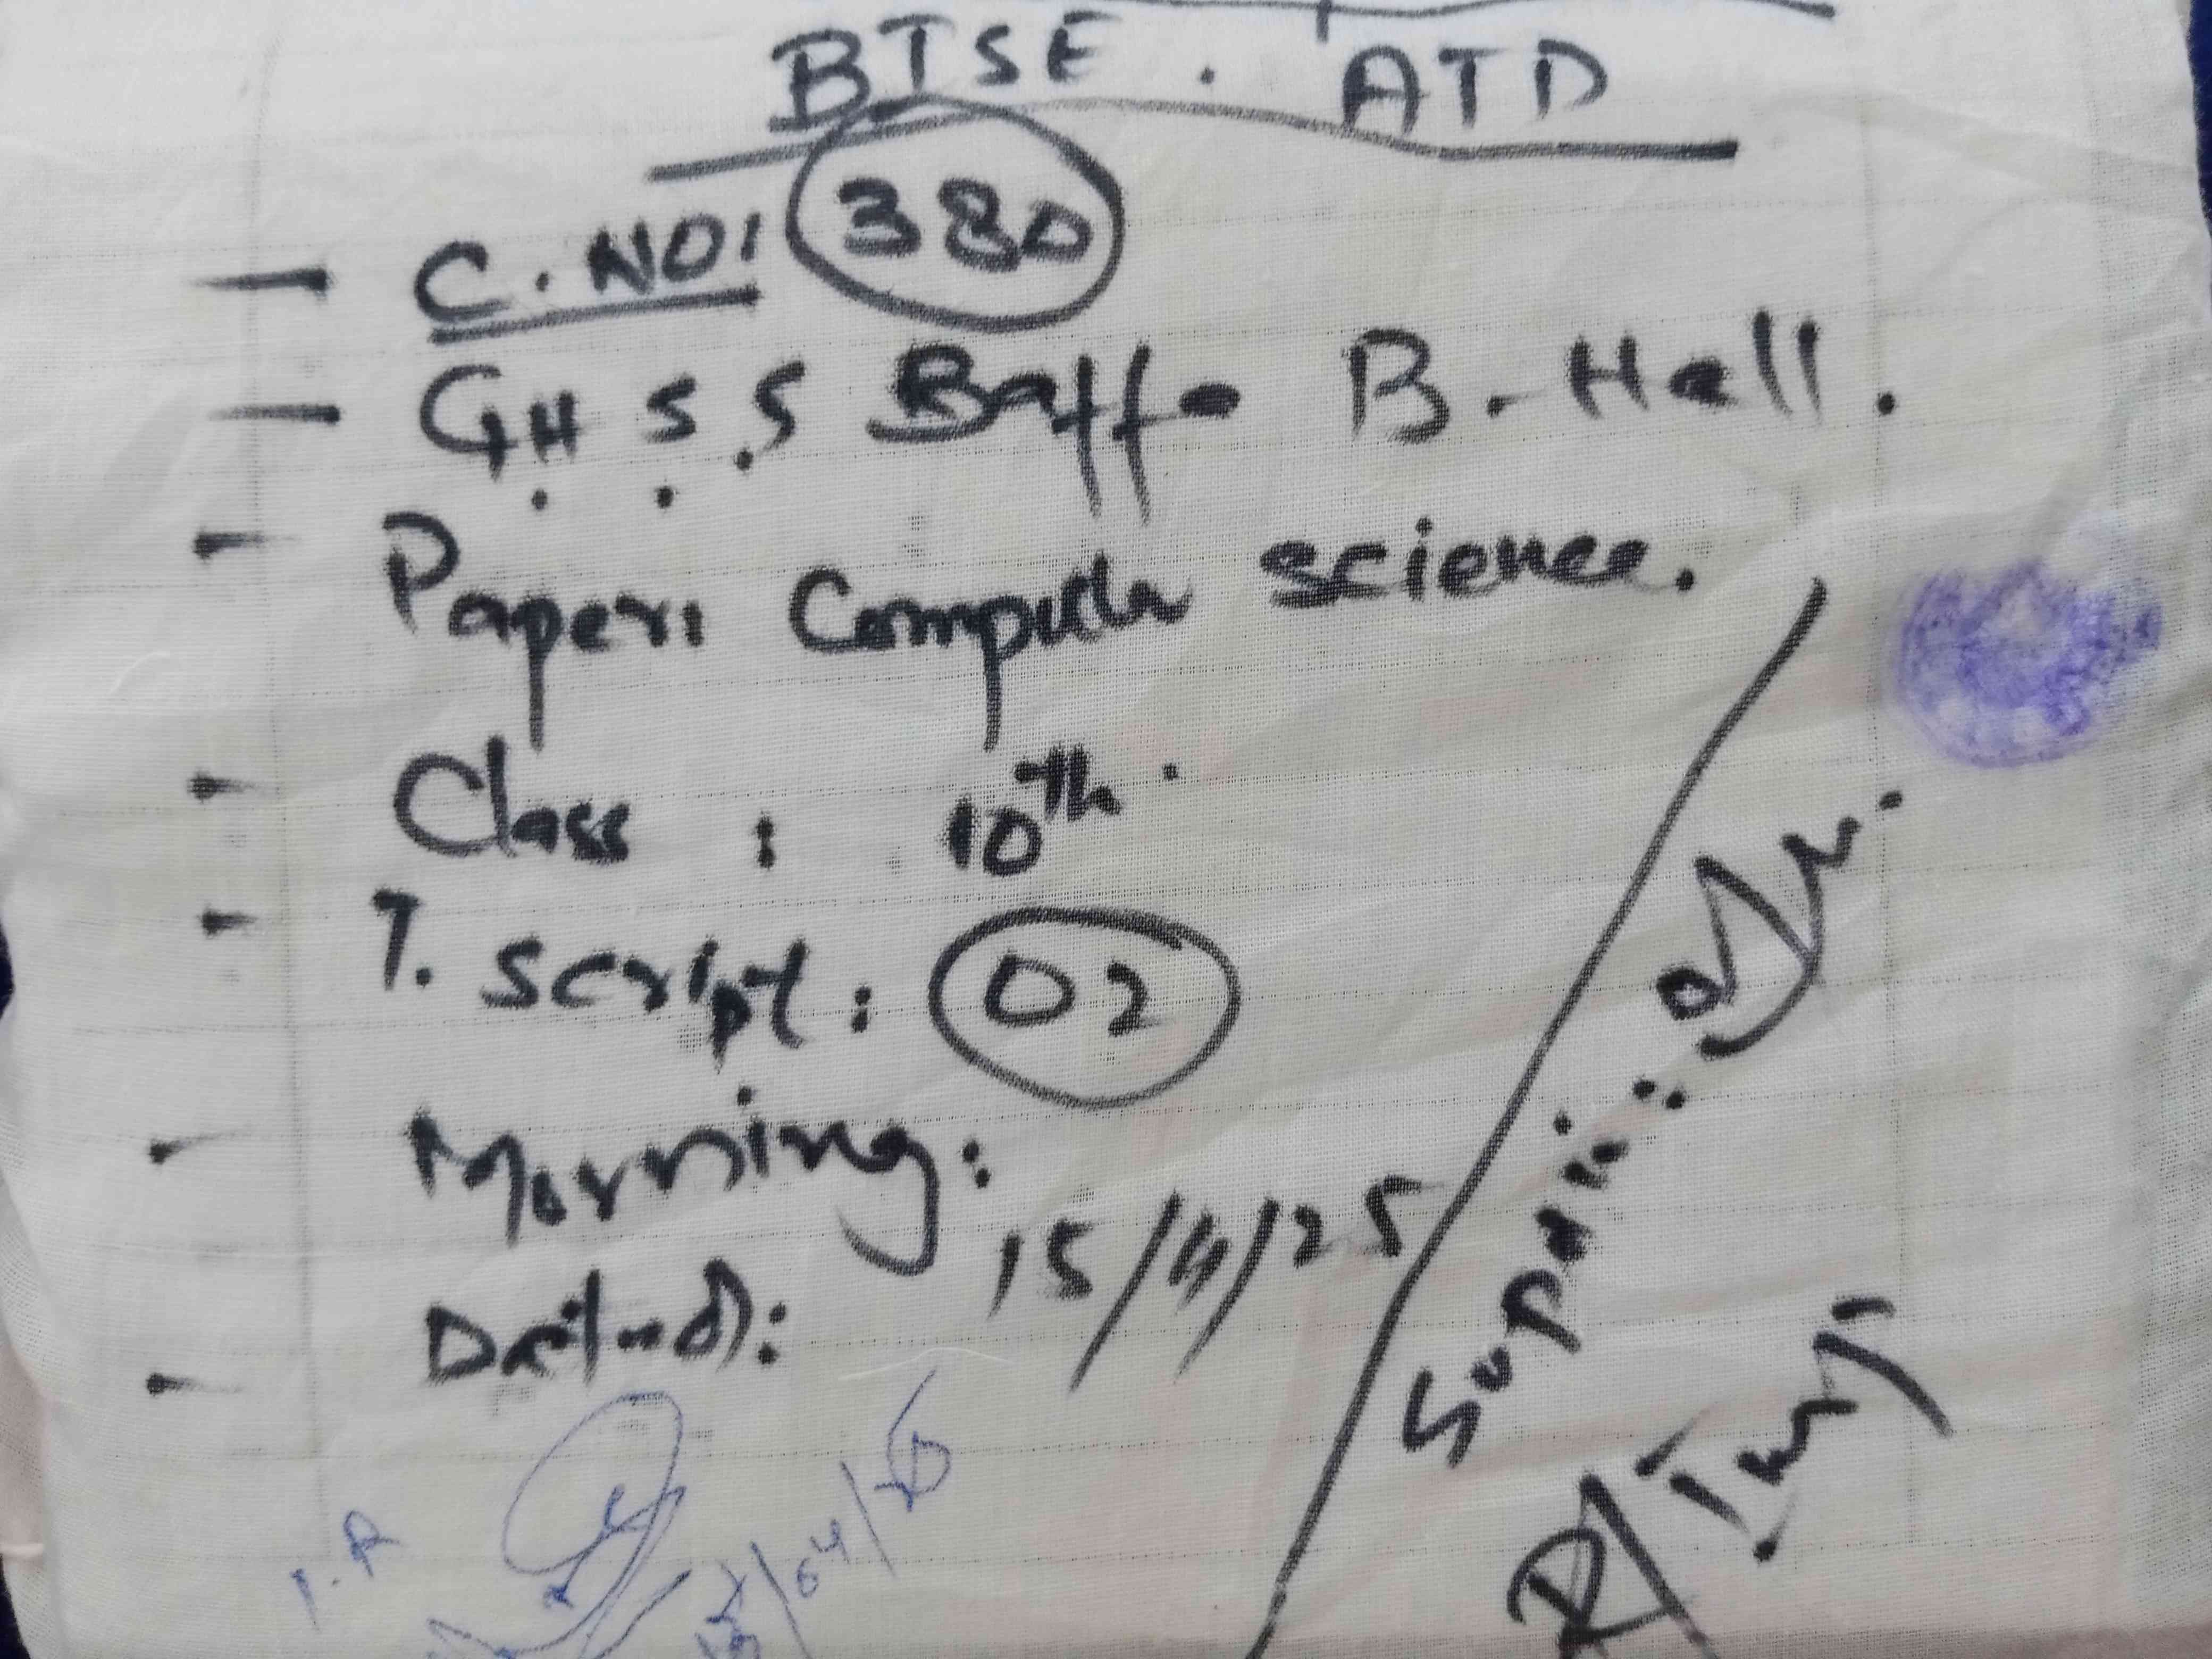 BISE. ATD
- C. NO: 380
- G.H.S.S Baffa B-Hall.
- Paper: Computer science.
- Class : 10th.
- T. Script: 02
- Morning:
- Dated: 15/4/25
Supdtt: